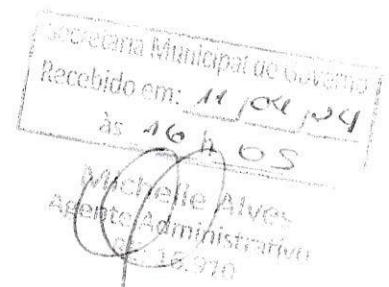 Secretaria Municipal de Governo
Recebido em: 11/04/24
às 16 h 05
Michelle Alves
Agente Administrativo
16.970